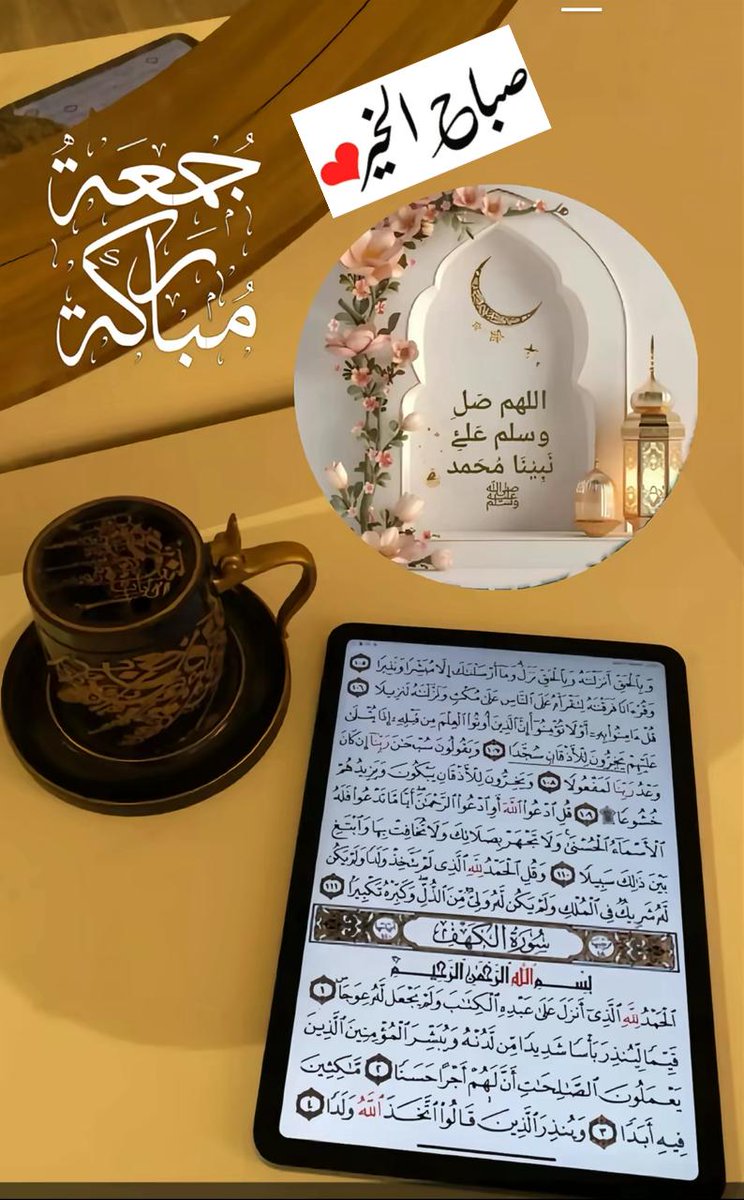 صباح الخير
جُمعَةٌ
مُباركَة
اللهم صَلِ
وسلم عَلىٰ
نَبِينَا مُحَمد
ﷺ
وَبِٱلْحَقِّ أَنزَلْنَٰهُ وَبِٱلْحَقِّ نَزَلَ وَمَآ أَرْسَلْنَٰكَ إِلَّا مُبَشِّرًا وَنَذِيرًا ١٠٥
وَقُرْءَانًا فَرَقْنَٰهُ لِتَقْرَأَهُۥ عَلَى ٱلنَّاسِ عَلَىٰ مُكْثٍ وَنَزَّلْنَٰهُ تَنزِيلًا ١٠٦
قُلْ ءَامِنُوا۟ بِهِۦٓ أَوْ لَا تُؤْمِنُوٓا۟ إِنَّ ٱلَّذِينَ أُوتُوا۟ ٱلْعِلْمَ مِن قَبْلِهِۦٓ إِذَا يُتْلَىٰ
عَلَيْهِمْ يَخِرُّونَ لِلْأَذْقَانِ سُجَّدًا ١٠٧ وَيَقُولُونَ سُبْحَٰنَ رَبِّنَآ إِن كَانَ
وَعْدُ رَبِّنَا لَمَفْعُولًا ١٠٨ وَيَخِرُّونَ لِلْأَذْقَانِ يَبْكُونَ وَيَزِيدُهُمْ
خُشُوعًا ١٠٩ قُلِ ٱدْعُوا۟ ٱللَّهَ أَوِ ٱدْعُوا۟ ٱلرَّحْمَٰنَ أَيًّا مَّا تَدْعُوا۟ فَلَهُ
ٱلْأَسْمَآءُ ٱلْحُسْنَىٰ وَلَا تَجْهَرْ بِصَلَاتِكَ وَلَا تُخَافِتْ بِهَا وَٱبْتَغِ
بَيْنَ ذَٰلِكَ سَبِيلًا ١١٠ وَقُلِ ٱلْحَمْدُ لِلَّهِ ٱلَّذِى لَمْ يَتَّخِذْ وَلَدًا وَلَمْ يَكُن
لَّهُۥ شَرِيكٌ فِى ٱلْمُلْكِ وَلَمْ يَكُن لَّهُۥ وَلِىٌّ مِّنَ ٱلذُّلِّ وَكَبِّرْهُ تَكْبِيرًا ١١١
سُورَةُ الكَهْفِ
بِسْمِ ٱللَّهِ ٱلرَّحْمَٰنِ ٱلرَّحِيمِ
ٱلْحَمْدُ لِلَّهِ ٱلَّذِىٓ أَنزَلَ عَلَىٰ عَبْدِهِ ٱلْكِتَٰبَ وَلَمْ يَجْعَل لَّهُۥ عِوَجَا ١
قَيِّمًا لِّيُنذِرَ بَأْسًا شَدِيدًا مِّن لَّدُنْهُ وَيُبَشِّرَ ٱلْمُؤْمِنِينَ ٱلَّذِينَ
يَعْمَلُونَ ٱلصَّٰلِحَٰتِ أَنَّ لَهُمْ أَجْرًا حَسَنًا ٢ مَّٰكِثِينَ
فِيهِ أَبَدًا ٣ وَيُنذِرَ ٱلَّذِينَ قَالُوا۟ ٱتَّخَذَ ٱللَّهُ وَلَدًا ٤